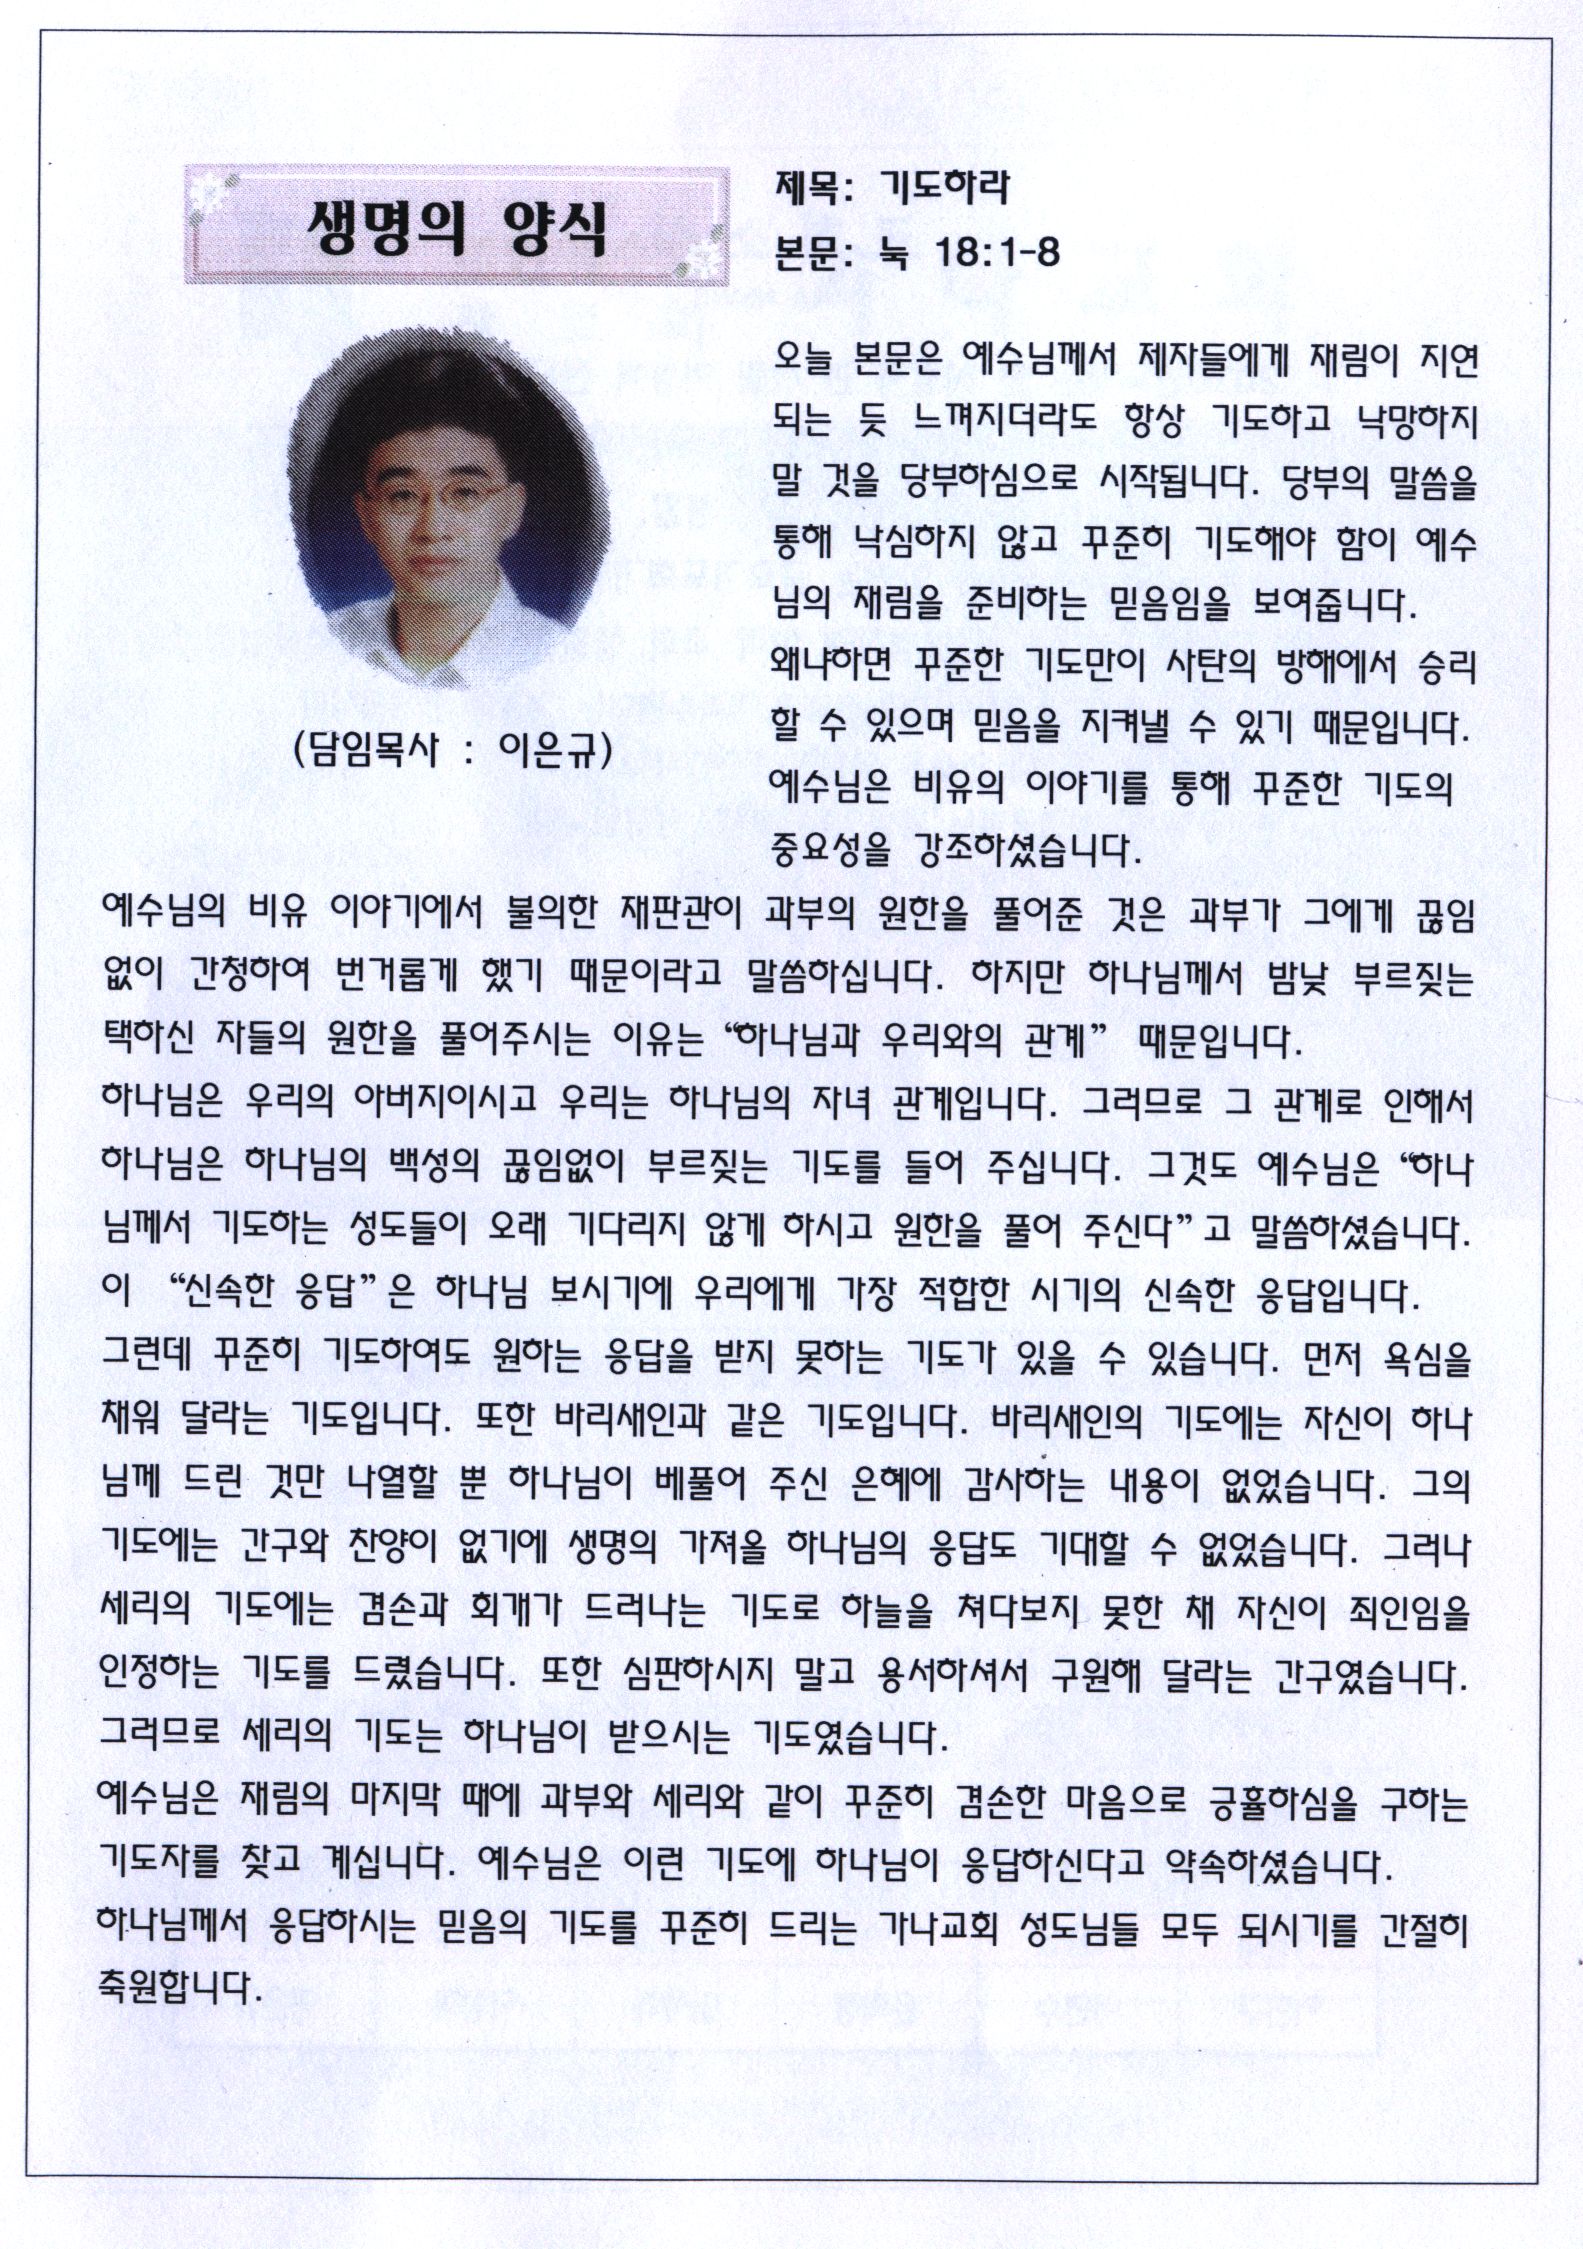 생명의 양식
제목: 기도하라
본문: 눅 18:1-8
(담임목사 : 이은규)
오늘 본문은 예수님께서 제자들에게 재림이 지연
되는 듯 느껴지더라도 항상 기도하고 낙망하지
말 것을 당부하심으로 시작됩니다. 당부의 말씀을
통해 낙심하지 않고 꾸준히 기도해야 함이 예수
님의 재림을 준비하는 믿음임을 보여줍니다.
왜냐하면 꾸준한 기도만이 사탄의 방해에서 승리
할 수 있으며 믿음을 지켜낼 수 있기 때문입니다.
예수님은 비유의 이야기를 통해 꾸준한 기도의
중요성을 강조하셨습니다.
예수님의 비유 이야기에서 불의한 재판관이 과부의 원한을 풀어준 것은 과부가 그에게 끊임
없이 간청하여 번거롭게 했기 때문이라고 말씀하십니다. 하지만 하나님께서 밤낮 부르짖는
택하신 자들의 원한을 풀어주시는 이유는 “하나님과 우리와의 관계” 때문입니다.
하나님은 우리의 아버지이시고 우리는 하나님의 자녀 관계입니다. 그러므로 그 관계로 인해서
하나님은 하나님의 백성의 끊임없이 부르짖는 기도를 들어 주십니다. 그것도 예수님은 “하나
님께서 기도하는 성도들이 오래 기다리지 않게 하시고 원한을 풀어 주신다”고 말씀하셨습니다.
이 “신속한 응답”은 하나님 보시기에 우리에게 가장 적합한 시기의 신속한 응답입니다.
그런데 꾸준히 기도하여도 원하는 응답을 받지 못하는 기도가 있을 수 있습니다. 먼저 욕심을
채워 달라는 기도입니다. 또한 바리새인과 같은 기도입니다. 바리새인의 기도에는 자신이 하나
님께 드린 것만 나열할 뿐 하나님이 베풀어 주신 은혜에 감사하는 내용이 없었습니다. 그의
기도에는 간구와 찬양이 없기에 생명의 가져올 하나님의 응답도 기대할 수 없었습니다. 그러나
세리의 기도에는 겸손과 회개가 드러나는 기도로 하늘을 쳐다보지 못한 채 자신이 죄인임을
인정하는 기도를 드렸습니다. 또한 심판하시지 말고 용서하셔서 구원해 달라는 간구였습니다.
그러므로 세리의 기도는 하나님이 받으시는 기도였습니다.
예수님은 재림의 마지막 때에 과부와 세리와 같이 꾸준히 겸손한 마음으로 긍휼하심을 구하는
기도자를 찾고 계십니다. 예수님은 이런 기도에 하나님이 응답하신다고 약속하셨습니다.
하나님께서 응답하시는 믿음의 기도를 꾸준히 드리는 가나교회 성도님들 모두 되시기를 간절히
축원합니다.